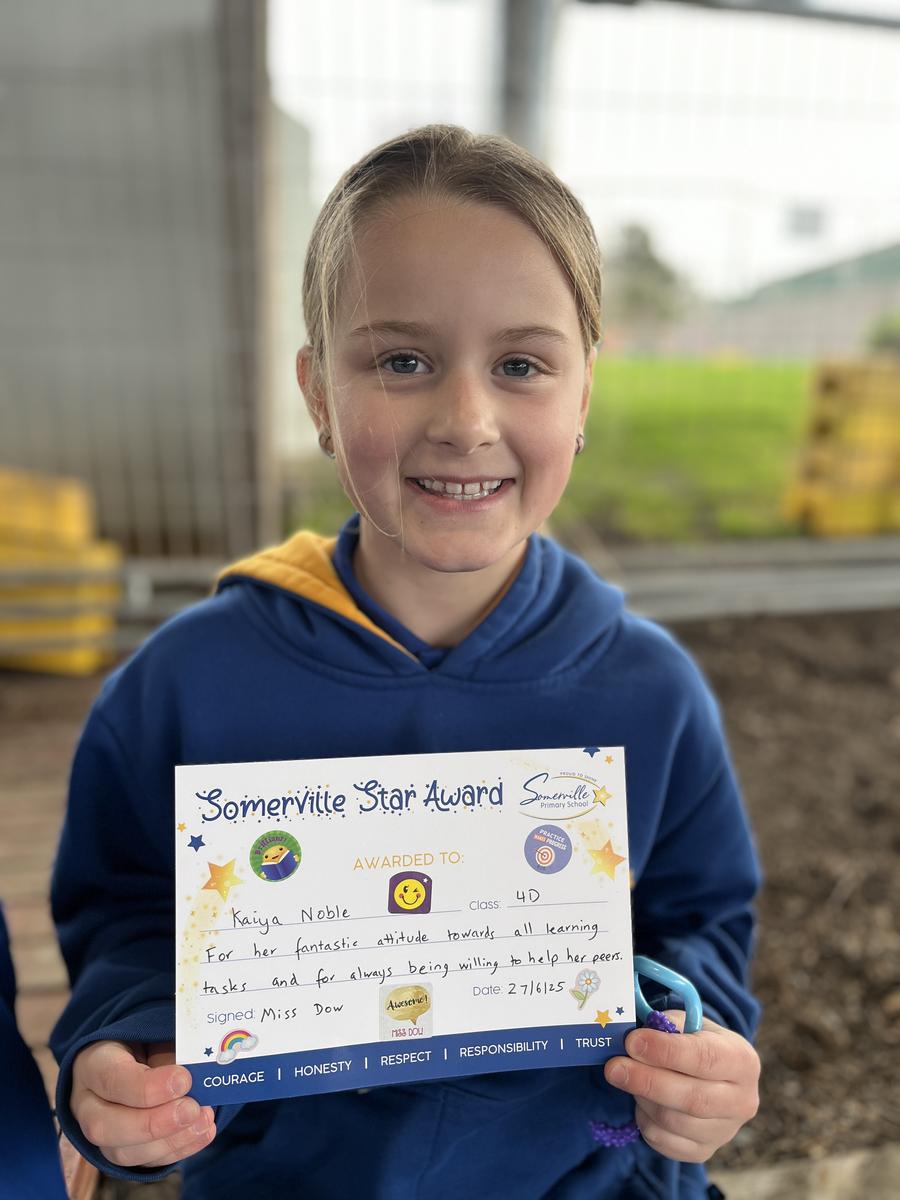 Somerville Star Award
PROUD TO SHINE
Somerville
Primary School
BRILLIANT!
PRACTICE
MAKES PROGRESS
AWARDED TO:
Kaiya Noble Class: 4D
For her fantastic attitude towards all learning
tasks and for always being willing to help her peers.
Signed: Miss Dow Date: 27/6/25
Awesome!
MISS DOW
COURAGE | HONESTY | RESPECT | RESPONSIBILITY | TRUST